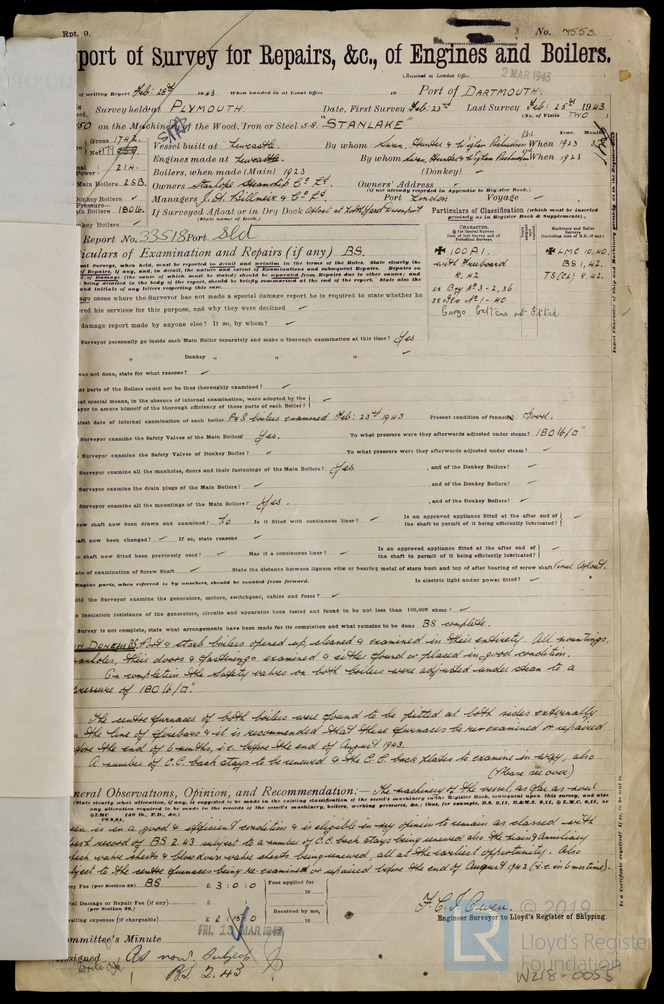 Rpt. 9.
No. 7553.
port of Survey for Repairs, &c., of Engines and Boilers.
(Received at London Office
2 MAR 1943
of writing Report Feb: 28th 1943 When handed in at Local Office 19 Port of DARTMOUTH.
Survey held at PLYMOUTH. Date, First Survey Feb: 23rd Last Survey Feb: 25th 1943
(No. of Visits TWO )
on the Machinery of the Wood, Iron or Steel s.s. "STANLAKE"
Gross 1742.
Net
Vessel built at Newcastle. By whom Swan, Hunter & Wigham Richardson Ltd When 1923
Year. Month.
Engines made at Newcastle. By whom Swan, Hunter & Wigham Richardson When 1923
Boilers, when made (Main) 1923 (Donkey) ✓
Main Boilers 2SB.
Owners Stanhope Steamship Co Ld. Owners' Address ✓
(If not already recorded in Appendix to Register Book.)
Donkey Boilers ✓
Managers J. A. Billmeir & Co Ld. Port London Voyage ✓
Main Boilers 180 lb.
If Surveyed Afloat or in Dry Dock Afloat at North Yard Devonport
(State name of Dock.)
Particulars of Classification (which must be inserted precisely as in Register Book & Supplements).
Report No. 33518 Port Sld
CHARACTER.
Machinery and Boiler Surveys
✠ 100 A1.
with freeboard
8,42
✠ LMC 10,40
BS 1,42.
TS(CL) 8.42.
culars of Examination and Repairs (if any) BS.
age cases where the Surveyor has not made a special damage report he is required to state whether he
red his services for this purpose, and why they were declined ✓
damage report made by anyone else? If so, by whom? ✓
Surveyor personally go inside each Main Boiler separately and make a thorough examination at this time? Yes
" Donkey " " " ✓
as not done, state for what reasons? ✓
at parts of the Boilers could not be thus thoroughly examined? ✓
at special means, in the absence of internal examination, were adopted by the
eyor to assure himself of the thorough efficiency of those parts of each Boiler? ✓
atest date of internal examination of each boiler P & S boilers examined Feb: 23rd 1943 Present condition of funnel(s) Good.
Surveyor examine the Safety Valves of the Main Boilers? Yes. To what pressure were they afterwards adjusted under steam? 180 lb/□"
Surveyor examine the Safety Valves of Donkey Boiler? ✓ To what pressure were they afterwards adjusted under steam? ✓
Surveyor examine all the manholes, doors and their fastenings of the Main Boilers? Yes , and of the Donkey Boilers? ✓
Surveyor examine the drain plugs of the Main Boilers? ✓ , and of the Donkey Boilers? ✓
Surveyor examine all the mountings of the Main Boilers? Yes. , and of the Donkey Boilers? ✓
ew shaft now been drawn and examined? No Is it fitted with continuous liner? ✓ Is an approved appliance fitted at the after end of the shaft to permit of it being efficiently lubricated? ✓
aft now been changed? ✓ If so, state reasons ✓
shaft now fitted been previously used? ✓ Has it a continuous liner? ✓ Is an approved appliance fitted at the after end of the shaft to permit of it being efficiently lubricated? ✓
ate of examination of Screw Shaft ✓ State the distance between lignum vitæ or bearing metal of stern bush and top of after bearing of screw shaft Vessel Afloat.
Engine parts, when referred to by numbers, should be counted from forward. Is electric light and/or power fitted? ✓
did the Surveyor examine the generators, motors, switchgear, cables and fuses? ✓
insulation resistance of the generators, circuits and apparatus been tested and found to be not less than 100,000 ohms? ✓
Survey is not complete, state what arrangements have been made for its completion and what remains to be done. BS complete.
DONE for BS. Port & starb boilers opened up, cleaned & examined in their entirety. All mountings,
manholes, their doors & fastenings examined & either found or placed in good condition.
On completion the safety valves on both boilers were adjusted under steam to a
pressure of 180 lb/□".
The centre furnaces of both boilers were found to be pitted at both sides externally
the line of firebars & it is recommended that these furnaces be re-examined or repaired
before the end of 6 months, i.e. before the end of August 1943.
A number of C.C. back stays to be renewed & the C.C. back plates to examine in way, also
(Please see over)
neral Observations, Opinion, and Recommendation:— The machinery of the vessel, as far as now
(State clearly what alteration, if any, is suggested to be made in the existing classification of the vessel's machinery in the Register Book, consequent upon this survey, and also
any alteration required to be made in the records of the vessel's machinery, boilers, working pressures, &c.; thus, for example, B.S. 9,11, B.&M.S. 9,11, or ✠L.M.C. 9,11, or
seen is in a good & efficient condition & is eligible in my opinion to remain as classed with
fresh record of BS 2.43 subject to a number of C.C. back stays being renewed also the main & auxiliary
check valve chests & blow down valve chests being renewed, all at the earliest opportunity. Also
subject to the centre furnaces being re-examined or repaired before the end of August 1943 (i.e. in 6 months time).
ey Fee (per Section 29) BS £ 3 : 0 : 0 Fees applied for
19
al Damage or Repair Fee (if any) £
(per Section 29.)
Received by me,
19
velling expenses (if chargeable) £ 2 : 15 : 0
F. C. J. Owen.
Engineer Surveyor to Lloyd's Register of Shipping.
FRI. 12 MAR 1943
ommittee's Minute
ssigned As now, Subject
B.S. 2.43
© 2019
LR
Lloyd's Register
Foundation
W218-0055